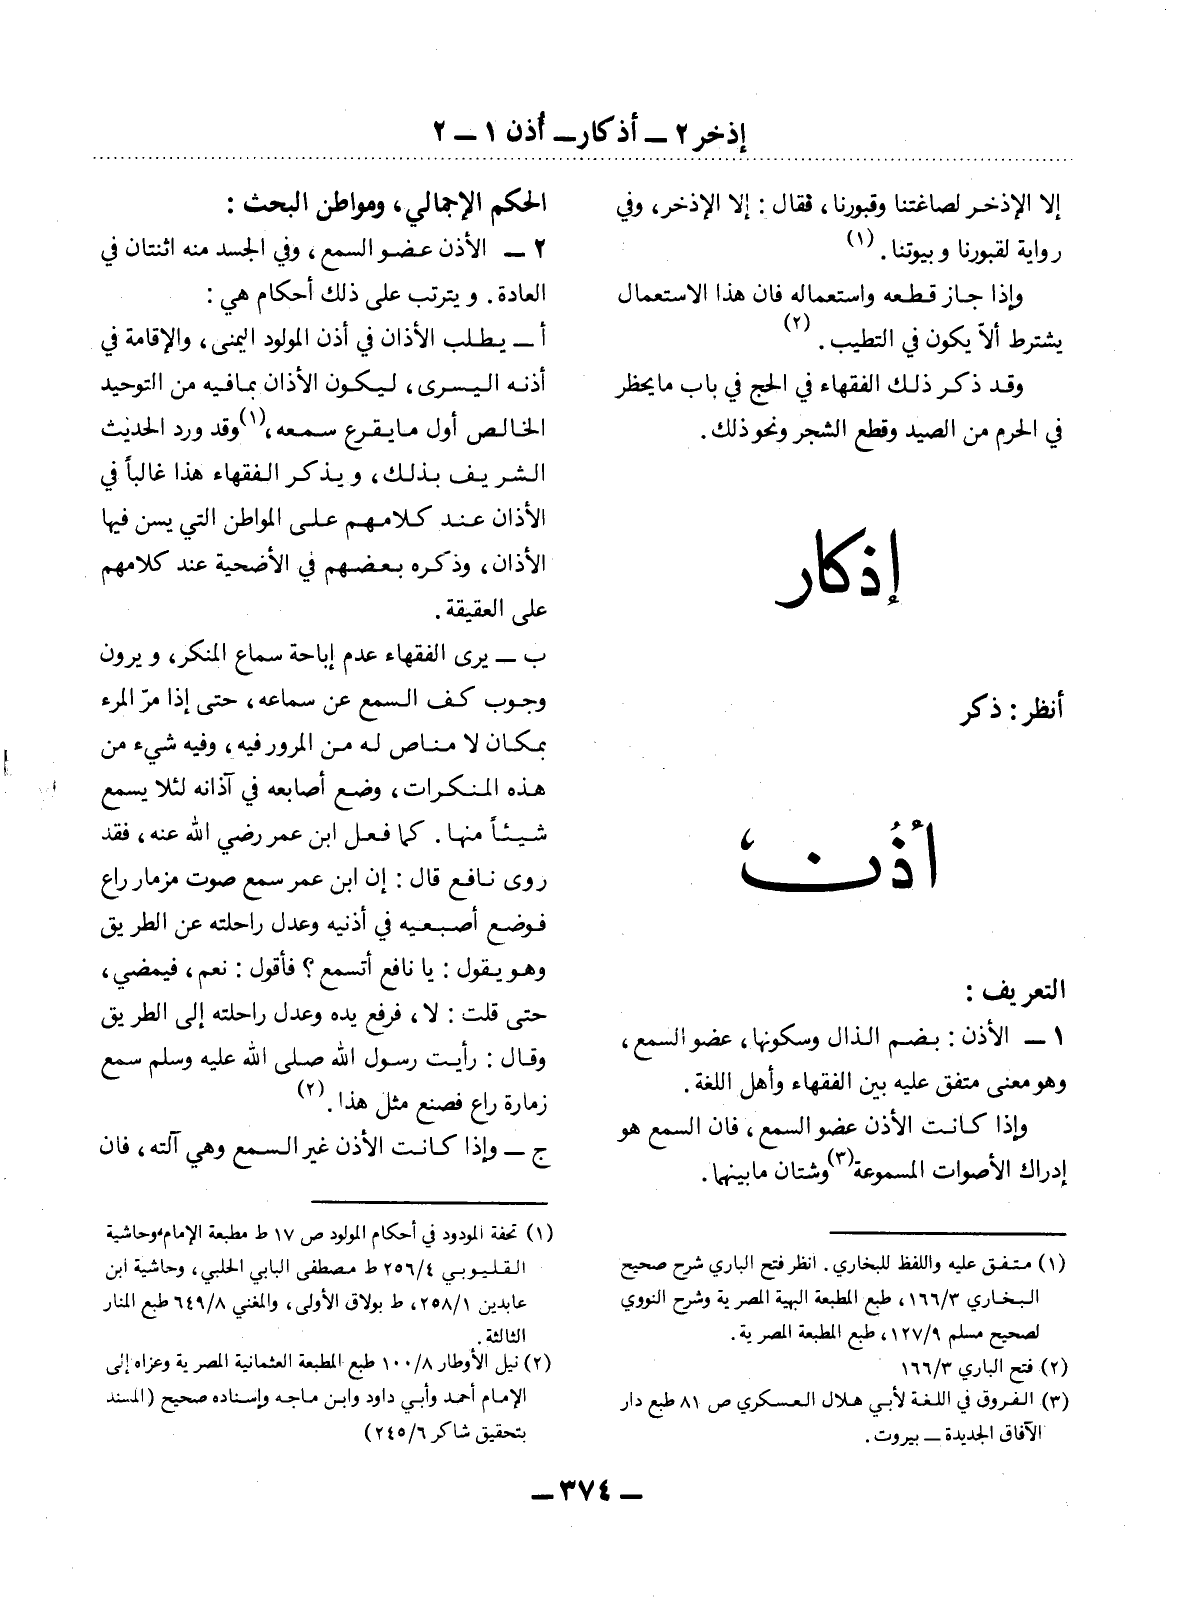 إذخر ٢ ــ أذكار ــ أذن ١ ــ ٢
إلا الإذخر لصاغتنا وقبورنا، فقال : إلا الإذخر، وفي
رواية لقبورنا وبيوتنا . (١)
وإذا جاز قطعه واستعماله فان هذا الاستعمال
يشترط ألاّ يكون في التطيب . (٢)
وقد ذكر ذلك الفقهاء في الحج في باب مايحظر
في الحرم من الصيد وقطع الشجر ونحو ذلك .
إذكار
أنظر : ذكر
أُذُن
التعريف :
١ ــ الأذن : بضم الذال وسكونها، عضو السمع،
وهو معنى متفق عليه بين الفقهاء وأهل اللغة .
وإذا كانت الأذن عضو السمع، فان السمع هو
إدراك الأصوات المسموعة (٣) وشتان مابينهما .
(١) متفق عليه واللفظ للبخاري . انظر فتح الباري شرح صحيح
البخاري ١٦٦/٣، طبع المطبعة البهية المصرية وشرح النووي
لصحيح مسلم ١٢٧/٩، طبع المطبعة المصرية .
(٢) فتح الباري ١٦٦/٣
(٣) الفروق في اللغة لأبي هلال العسكري ص ٨١ طبع دار
الآفاق الجديدة ــ بيروت .
الحكم الإجمالي، ومواطن البحث :
٢ ــ الأذن عضو السمع، وفي الجسد منه اثنتان في
العادة . ويترتب على ذلك أحكام هي :
أ ــ يطلب الأذان في أذن المولود اليمنى، والإقامة في
أذنه اليسرى، ليكون الأذان بمافيه من التوحيد
الخالص أول مايقرع سمعه، (١) وقد ورد الحديث
الشريف بذلك، ويذكر الفقهاء هذا غالباً في
الأذان عند كلامهم على المواطن التي يسن فيها
الأذان، وذكره بعضهم في الأضحية عند كلامهم
على العقيقة .
ب ــ يرى الفقهاء عدم إباحة سماع المنكر، ويرون
وجوب كف السمع عن سماعه، حتى إذا مرّ المرء
بمكان لا مناص له من المرور فيه، وفيه شيء من
هذه المنكرات، وضع أصابعه في آذانه لئلا يسمع
شيئاً منها . كما فعل ابن عمر رضي الله عنه، فقد
روى نافع قال : إن ابن عمر سمع صوت مزمار راع
فوضع أصبعيه في أذنيه وعدل راحلته عن الطريق
وهو يقول : يا نافع أتسمع ؟ فأقول : نعم، فيمضي،
حتى قلت : لا، فرفع يده وعدل راحلته إلى الطريق
وقال : رأيت رسول الله صلى الله عليه وسلم سمع
زمارة راع فصنع مثل هذا . (٢)
ج ــ وإذا كانت الأذن غير السمع وهي آلته، فان
(١) تحفة المودود في أحكام المولود ص ١٧ ط مطبعة الإمام، وحاشية
القليوبي ٢٥٦/٤ ط مصطفى البابي الحلبي، وحاشية ابن
عابدين ٢٥٨/١، ط بولاق الأولى، والمغني ٦٤٩/٨ طبع المنار
الثالثة .
(٢) نيل الأوطار ١٠٠/٨ طبع المطبعة العثمانية المصرية وعزاه إلى
الإمام أحمد وأبي داود وابن ماجه وإسناده صحيح (المسند
بتحقيق شاكر ٢٤٥/٦)
ــ ٣٧٤ ــ